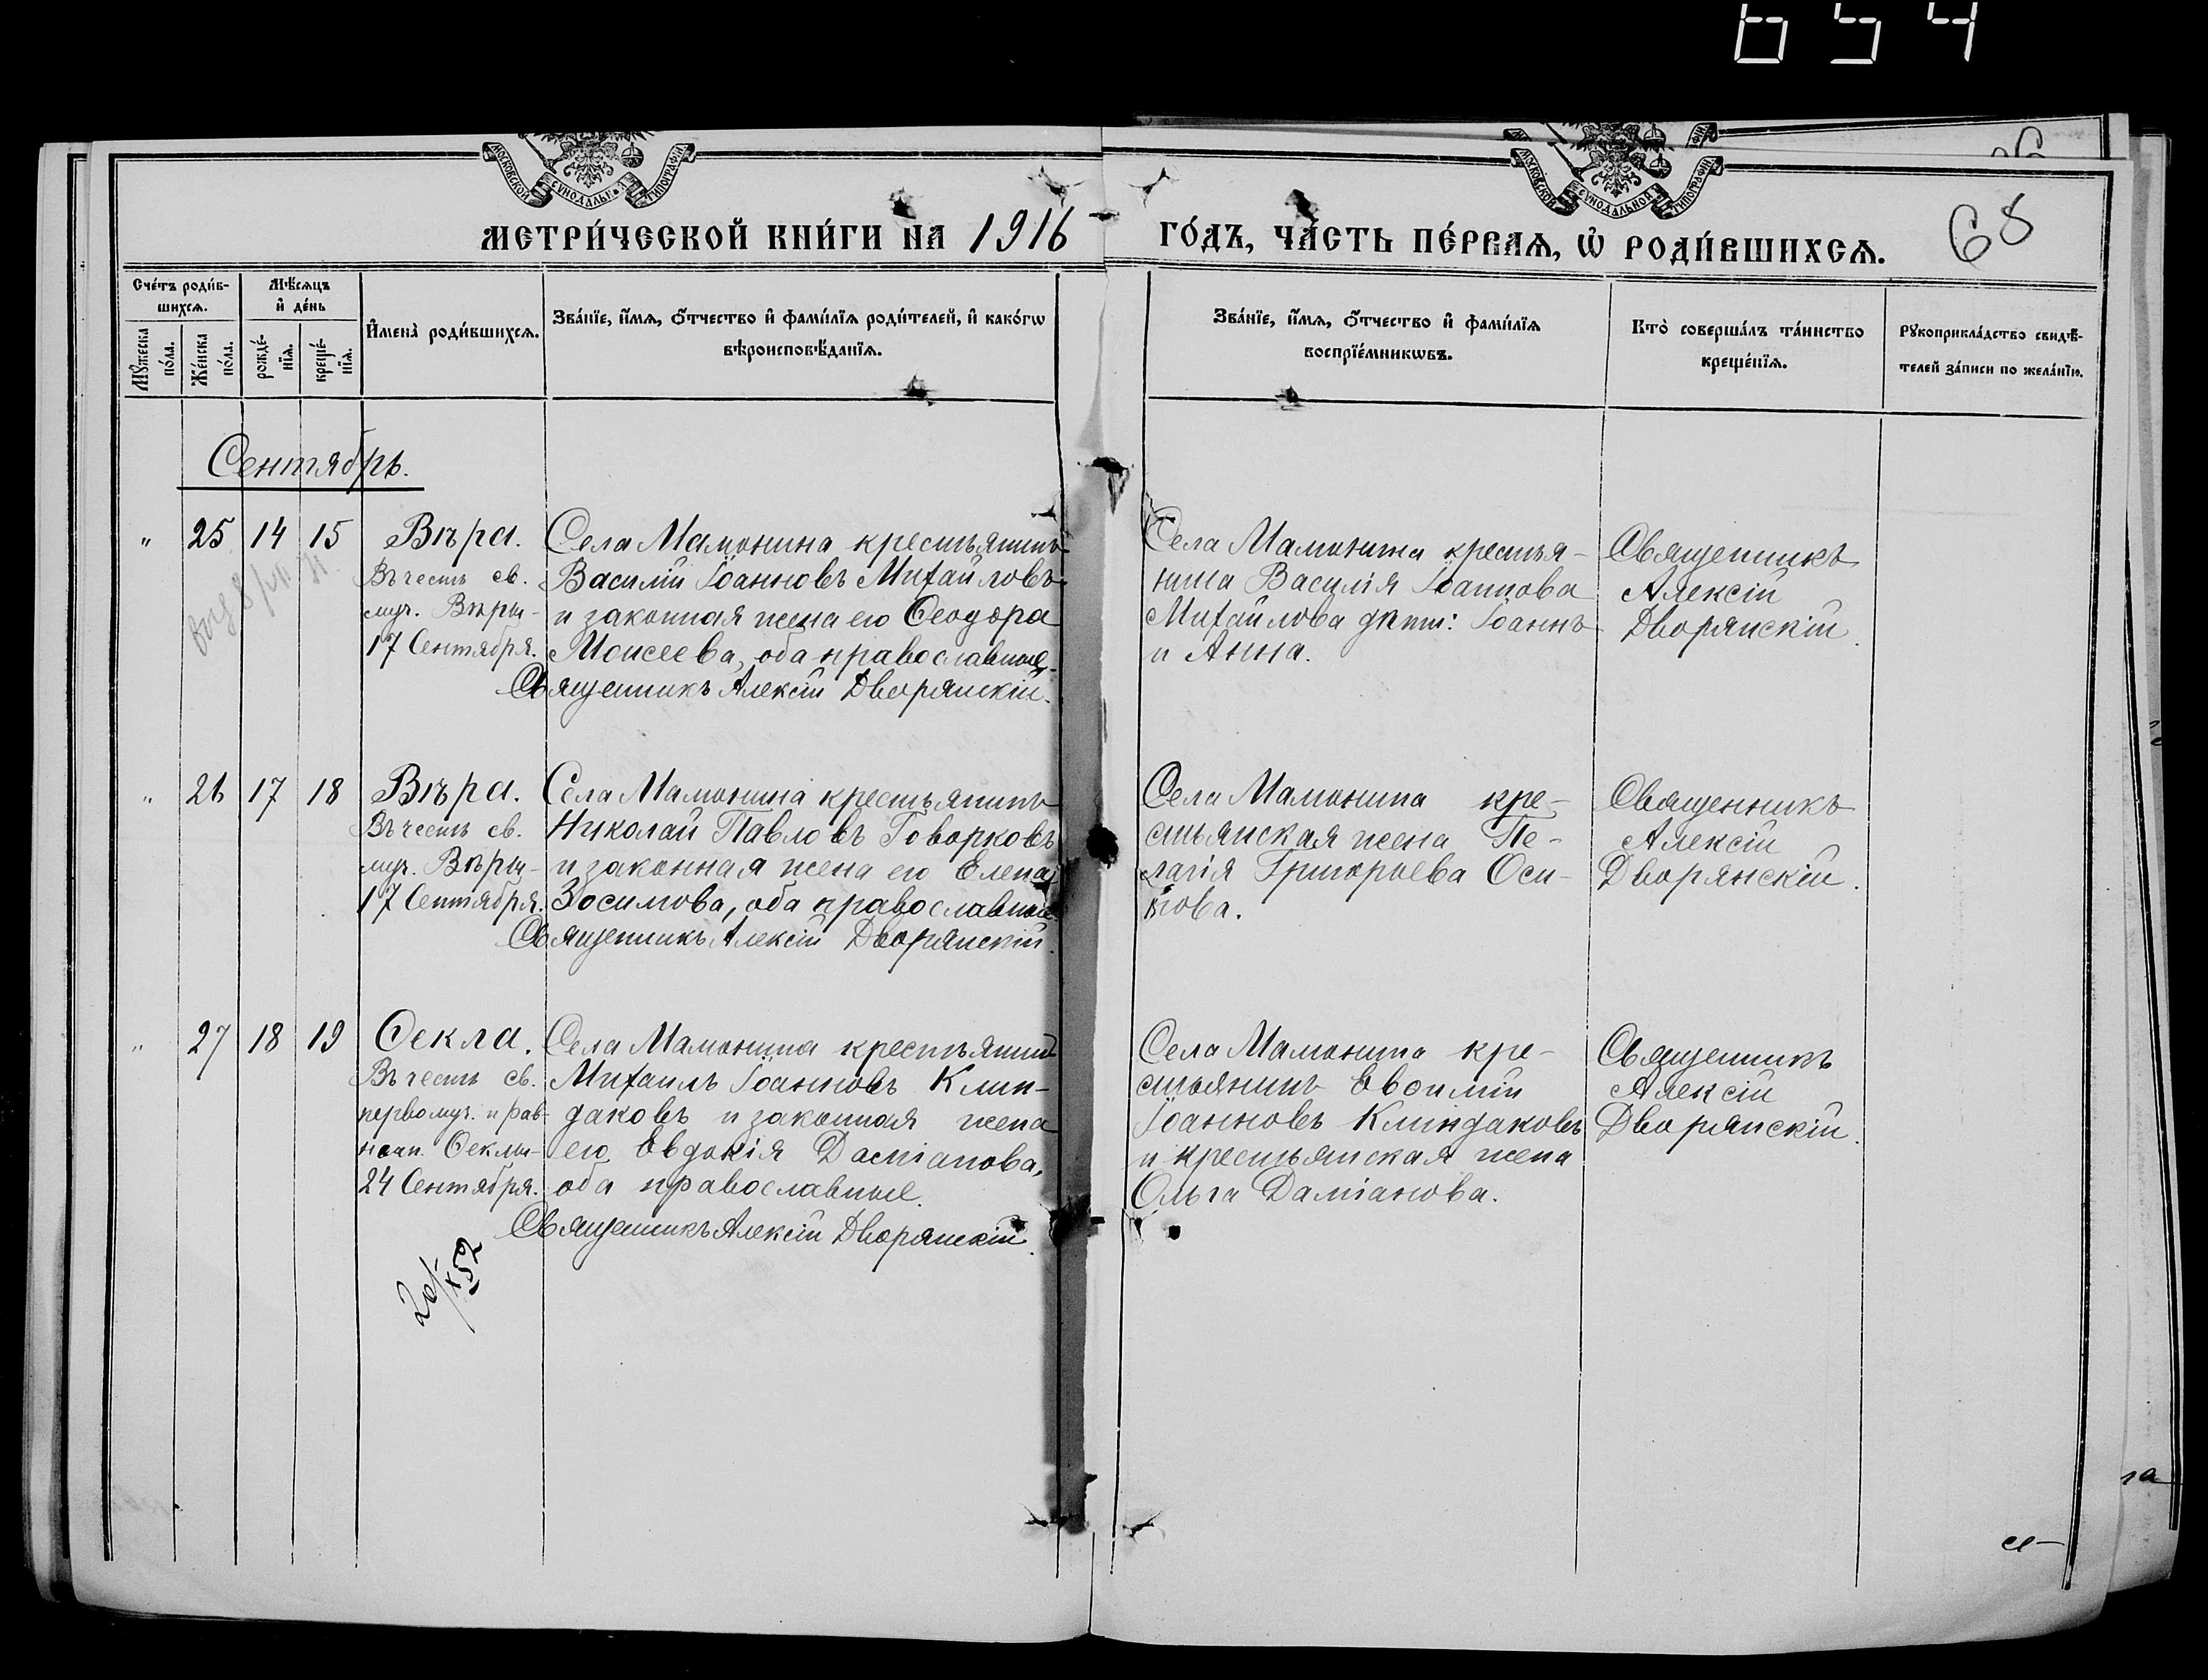 654
МОСКОВСКОЙ СУНОДАЛЬНОЙ ТИПОГРАФІИ
МОСКОВСКОЙ СУНОДАЛЬНОЙ ТИПОГРАФІИ
МЕТРИ́ЧЕСКОЙ КНИ́ГИ НА 1916
ГО́ДЪ, ЧА́СТЬ ПЕ́РВАѦ, Ѡ҆ РОДИ́ВШИХСѦ.
68
Сче́тъ роди́в-
шихсѧ.
Мꙋ́жеска по́ла.
Же́нска по́ла.
Мѣ́сѧцъ
и҆ де́нь
рожде́-нїѧ.
креще́-нїѧ.
И҆мена̀ роди́вшихсѧ.
Зва́нїе, и҆́мѧ, ѻ҆́тчество и҆ фами́лїѧ роди́телей, и҆ како́гѡ
вѣроисповѣ́данїѧ.
Зва́нїе, и҆́мѧ, ѻ҆́тчество и҆ фами́лїѧ
воспрїе́мникѡвъ.
Кто̀ соверша́лъ та́инство
креще́нїѧ.
Рꙋкоприкла́дство свидѣ́-
телей за́писи по жела́нїю.
Сентябрь.
" 25 14 15
Вѣра.
Въ честь св.
муч. Вѣры -
17 Сентября.
Села Мамонина крестьянинъ
Василій Іоанновъ Михайловъ
и законная жена его Ѳеодора
Моисеева, оба православные.
Священникъ Алексій Дворянскій.
Села Мамонина крестья-
нина Василія Іоаннова
Михайлова дѣти: Іоаннъ
и Анна.
Священникъ
Алексій
Дворянскій.
" 26 17 18
Вѣра.
Въ честь св.
муч. Вѣры -
17 Сентября.
Села Мамонина крестьянинъ
Николай Павловъ Говорковъ
и законная жена его Елена
Зосимова, оба православные.
Священникъ Алексій Дворянскій.
Села Мамонина кре-
стьянская жена Пе-
лагія Григорьева Оси-
пова.
Священникъ
Алексій
Дворянскій.
" 27 18 19
Ѳекла.
Въ честь св.
первомуч. и рав-
ноап. Ѳеклы -
24 Сентября.
Села Мамонина крестьянинъ
Михаилъ Іоанновъ Клин-
даковъ и законная жена
его Евдокія Даміанова,
оба православные.
Священникъ Алексій Дворянскій.
Села Мамонина кре-
стьянинъ Евѳимій
Іоанновъ Клиндаковъ
и крестьянская жена
Ольга Даміанова.
Священникъ
Алексій
Дворянскій.